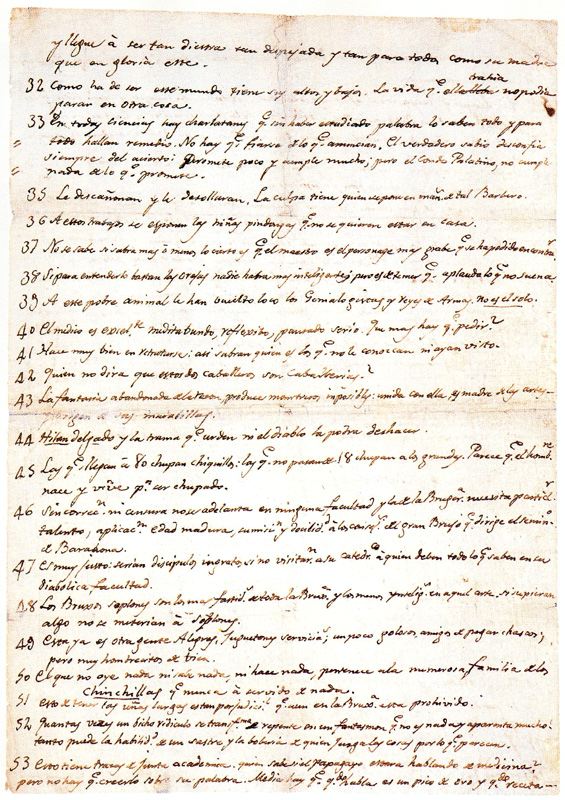 y llegue à ser tan diestra tan despejada y tan para todo como su madre
que en gloria este.
32 Como ha de ser este mundo tiene sus altos y bajos. La vida q.e ella trahia no podia
parar en otra cosa.
33 En todas ciencias hay charlatanes q.e sin haber estudiado palabra lo saben todo y para
todo hallan remedio. No hay q.e fiarse de lo q.e anuncian. El verdadero sabio desconfia
siempre del acierto: promete poco y cumple mucho; pero el Conde Palatino, no cumple
nada de lo q.e promete.
35 Le descañonan y le desollaran. La culpa tiene quien se pone en man.s de tal Barbero.
36 A estos trabajos se esponen las niñas pindongas q.e no se quieren estar en casa.
37 No se sabe si sabra mas ò menos, lo cierto es q.e el maestro es el personage mas grabe q.e se ha podido encontrar
38 Si para entenderlo bastan las orejas nadie habra mas inteligente; pero es de temer q.e aplauda lo q.e no suena.
39 A este pobre animal le han vuelto loco los Genialogistas y reyes de Armas. no es el solo.
40 El medico es excel.te meditabundo, reflexibo, pausado serio. Que mas hay q.e pedir?
41 Hace muy bien en retratarse: asi sabran quien es los q.e no le conozcan ni ayan visto.
42 Quien no dira que estos dos caballeros son caballerias?
43 La fantasia abandonada de la razon, produce monstruos imposibles: unida con ella, es madre de las artes
y origen de sus marabillas.
44 Hilan delgado y la trama q.e urden ni el diablo la podra deshacer.
45 Las q.e llegan a 80 chupan chiquillos: las q.e no pasan de 18 chupan a los grandes. Parece q.e el homb.re
nace y vive p.a ser chupado.
46 Sin correcc.n ni censura no se adelanta en ninguna facultad y la de la Bruger.a necesita particul.r
talento, aplicac.n edad madura, sumisi.n y docilid.d à los consej.s del gran Brujo q.e dirige el semin.o
de Barahona.
47 Es muy justo: serian discipulos ingratos si no visitar.n a su catedr.co à quien deben todo lo q.e saben en su
diabolica facultad.
48 Los Bruxos soplones son los mas fastid.s de toda la Brux.a y los menos yntelig.s en aquel arte. si supieran
algo no se meterian à soplones.
49 Esta ya es otra gente Alegres, juguetones servicial.s; un poco golosos, amigos de pegar chascos;
pero muy hombrecitos de bien.
50 El que no oye nada ni sabe nada, ni hace nada, pertenece a la numerosa familia de los
Chinchillas q.e nunca à servido de nada.
51 Esto de tener las uñas largas es tan perjudic.l q.e aun en la Brux.a esta prohivido.
52 Quantas veces un bicho ridiculo se transforma de repente en un fantasmon q.e no es nada y aparenta mucho.
tanto puede la habilid.d de un sastre y la boberia de quien juzga las cosas por lo q.e parecen.
53 Esto tiene trazas de junta academica. quien sabe si el papagayo estara hablando de medicina?
pero no hay q.e creerlo sobre su palabra. Medico hay q.e q.do habla es un pico de oro y q.do receta